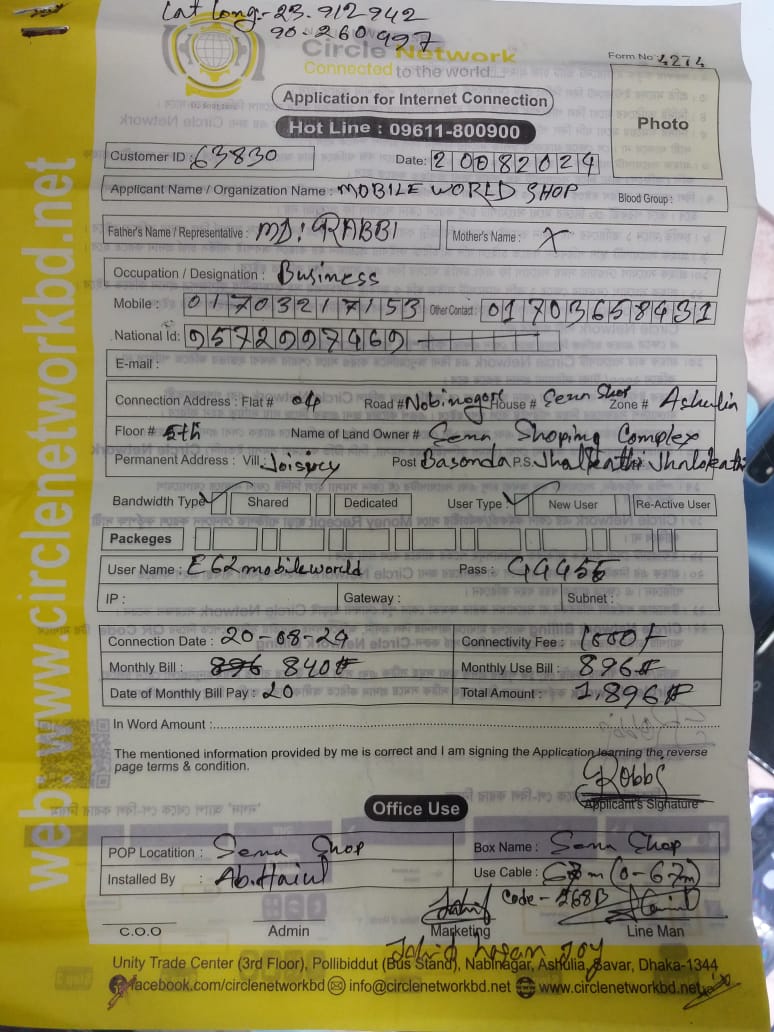 Lat Long:- 23.912942
90.260997
Circle Network
Connected to the world....
Form No 4274
Application for Internet Connection
Photo
Hot Line : 09611-800900
Customer ID : 63830
Date: 20082024
Applicant Name / Organization Name : MOBILE WORLD SHOP
Blood Group :
Father's Name / Representative : MD: RABBI
Mother's Name : X
Occupation / Designation : Business
Mobile : 01703217153 Other Contact : 01703658431
National Id: 9572997469
E-mail :
Connection Address : Flat # 04 Road # Nobinogor House # Sena Shop Zone # Ashulia
Floor # 5th Name of Land Owner # Sena Shoping Complex
Permanent Address : Vill Post Basonda P.S. Jhalkathi Jhalokathi
Bandwidth Type ✓ Shared Dedicated User Type ✓ New User Re-Active User
Packeges
User Name : E62mobileworld Pass : 44455
IP : Gateway : Subnet :
Connection Date : 20-08-24 Connectivity Fee : 1000/
Monthly Bill : 896 840 Monthly Use Bill : 896
Date of Monthly Bill Pay : 20 Total Amount : 1,896
In Word Amount :
The mentioned information provided by me is correct and I am signing the Application learning the reverse
page terms & condition.
Robbi
Applicant's Signature
Office Use
POP Locatition : Sena Shop Box Name : Sena Shop
Installed By : Ab. Use Cable : 67m (0-67m)
Code - 268B
C.O.O Admin Marketing Line Man
Jahid hasan Joy
Unity Trade Center (3rd Floor), Pollibiddut (Bus Stand), Nabinagar, Ashulia, Savar, Dhaka-1344
facebook.com/circlenetworkbd info@circlenetworkbd.net www.circlenetworkbd.net
web: www.circlenetworkbd.net